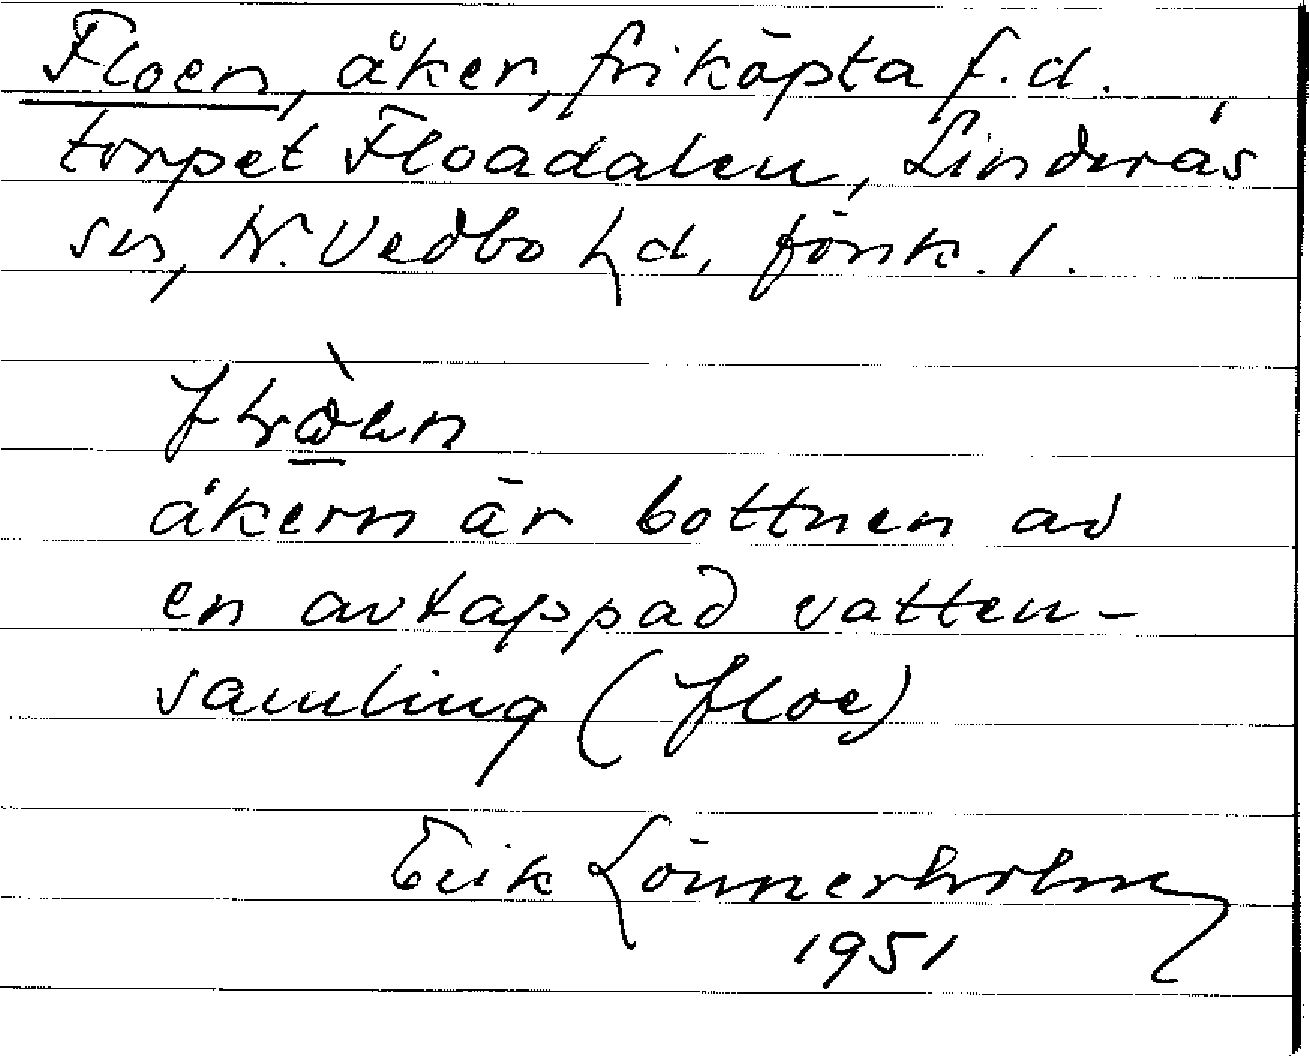 Floen, åker, friköpta f.d.
torpet Floadalen, Linderås
sn, N. Vedbo hd, Jönk. l.
åkern är bottnen av
en avtappad vatten-
samling (floe)
Erik Lönnerholm
1951